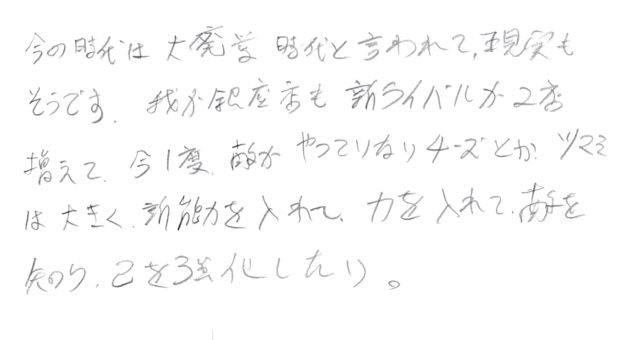 今の時代は大発育時代と言われて,現実も
そうです. 我が銀座店も新ライバルが2店
増えて. 今1度. 敵が やっていない チーズとか. ツマミ
は 大きく. 新能力を入れて. 力を入れて.敵を
知り. 己を強化したい。